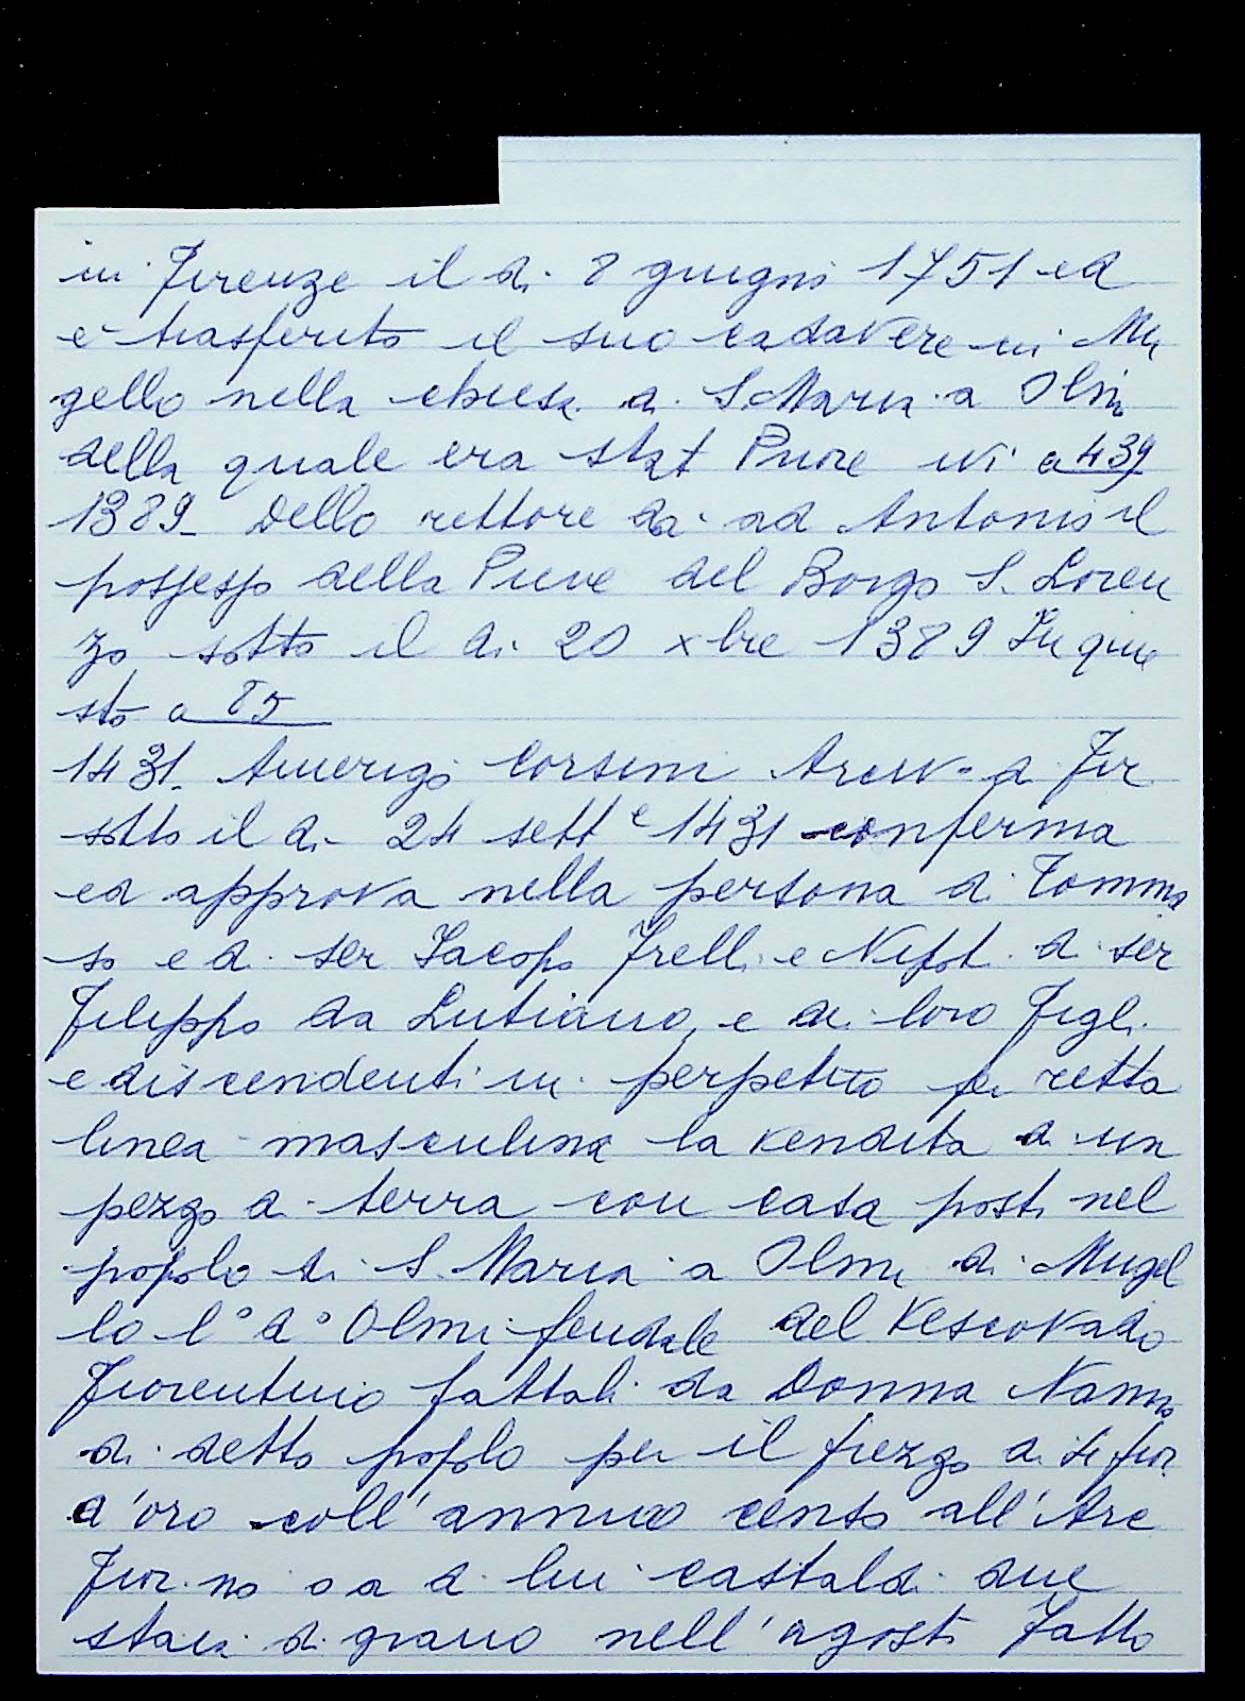 in Firenze il di 8 giugno 1751 ed
è trasferito il suo cadavere in Mu
gello nella chiesa di S. Maria a Olmi
della quale era stat Priore ivi a 439
1389_ Dello rettore da ad Antonio il
possesso della Pieve del Borgo S. Loren
zo sotto il di 20 xbre 1389 In que
sto a 85
1431_ Amerigo Corsini Arciv. di Fir
sotto il di 24 sett e 1431 conferma
ed approva nella persona di Tomma
so e di ser Jacopo Frelli e Nipot. di ser
Filippo da Lutiano, e dei loro Figli
e discendenti in perpetuo per retta
linea masculina la vendita di un
pezzo di terra con casa posti nel
popolo di S. Maria a Olmi di Mugel
lo l° d° Olmi feudale del Vescovado
Fiorentino fattali da Donna Nanna
di detto popolo per il prezzo di fior.
d'oro coll'annuo censo all'Arc
Fior.no o a di lui castaldi due
staia di grano nell'agosto Fatto